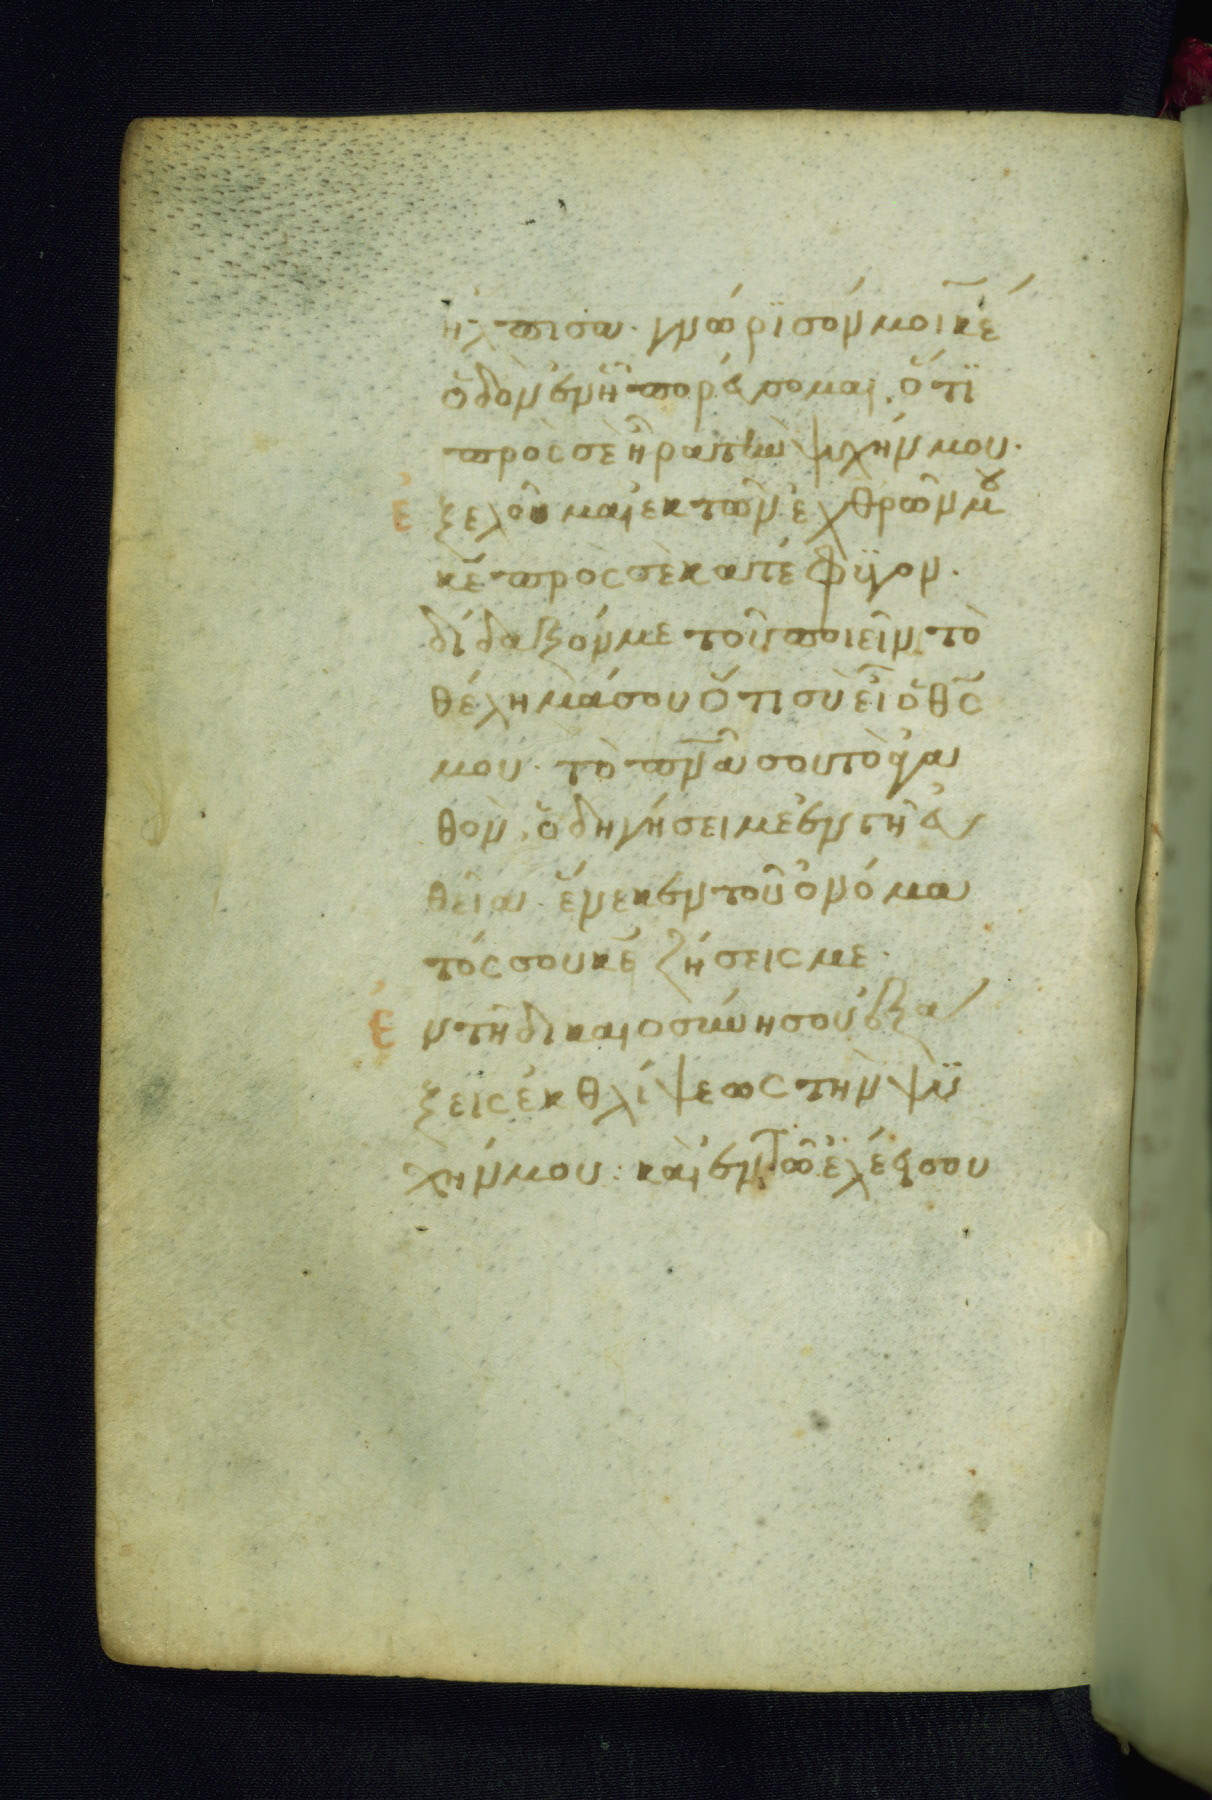 ἤλπισα· γνώρϊσόν μοι κ̅ε̅
ὁδὸν ἐν ᾗ πορεύσομαι, ὅτϊ
πρὸς σὲ ἦρα τὴν ψυχήν μου·
ἐξελοῦ μαι ἐκ τῶν ἐχθρῶν μου
κ̅ε̅ πρὸς σὲ κατέφϋγον·
δίδαξόν με τοῦ ποιεῖν τὸ
θέλημά σου ὅτι σὺ εἶ ὁ θ̅ς̅
μου· τὸ πν̅α̅ σου τὸ ἀγα
θὸν, ὁδηγήσει με ἐν τῇ εὐ
θεία· ἕνεκεν τοῦ ὀνόμα
τός σου κ̅ε̅ ζήσεις με·
Ἐν τῇ δικαιοσύνη σου ἐξά
ξεις ἐκ θλίψεως τὴν ψϋ
χήν μου· καὶ ἐν τῶ ἐλέει σου